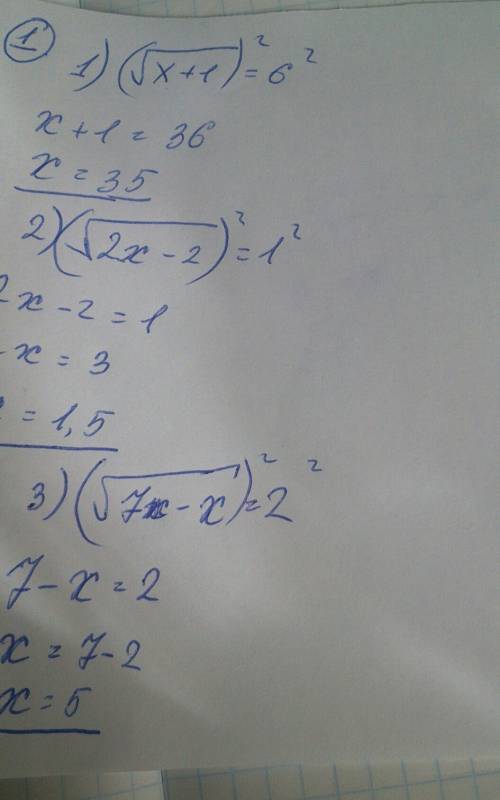 1
1) (√x+1)² = 6²
x + 1 = 36
x = 35
2) (√2x - 2)² = 1²
2x - 2 = 1
x = 3
= 1,5
3) (√7 - x)² = 2²
7 - x = 2
x = 7 - 2
x = 5